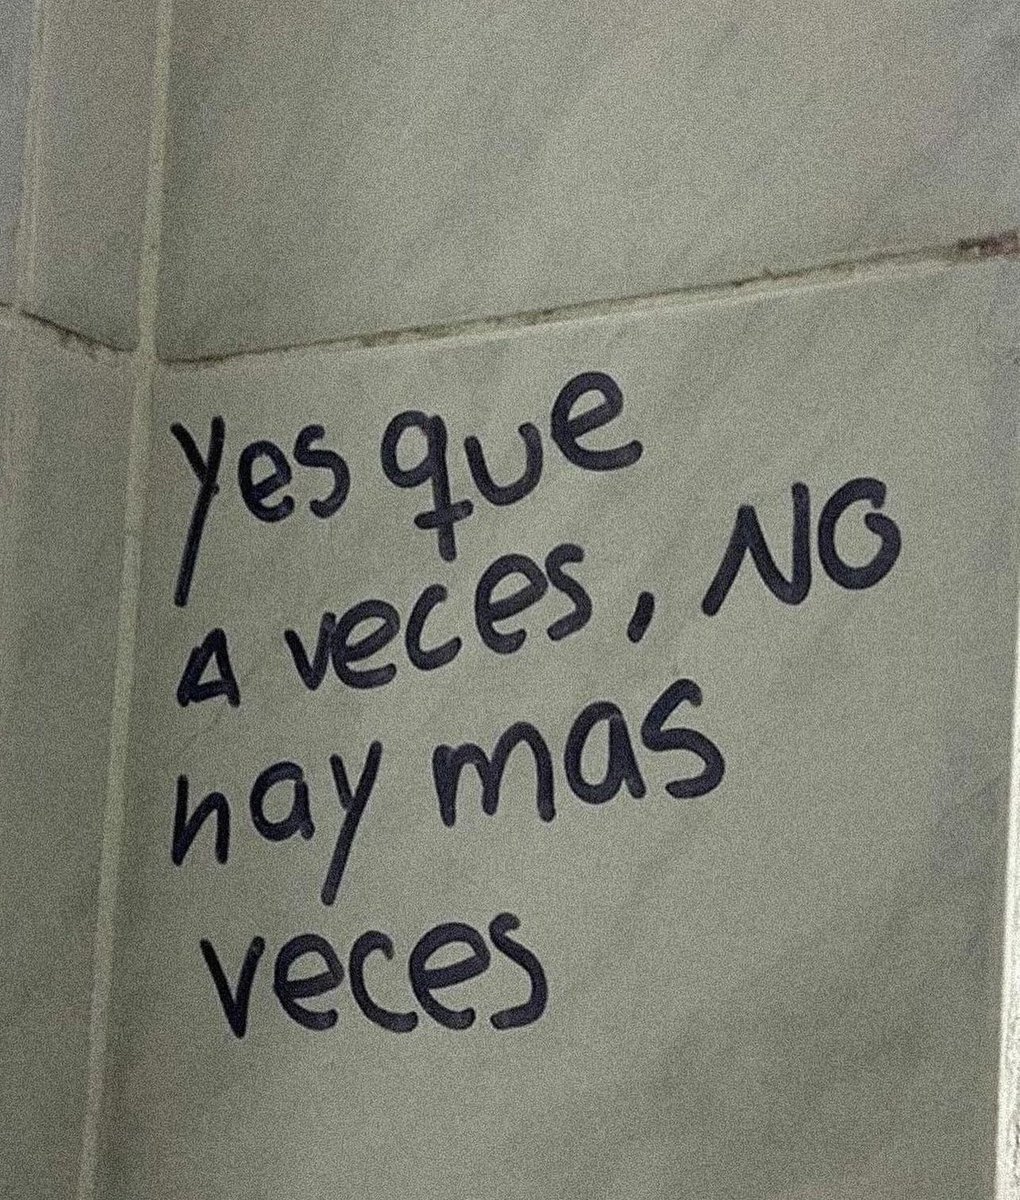 yes que
A veces, NO
hay mas
veces